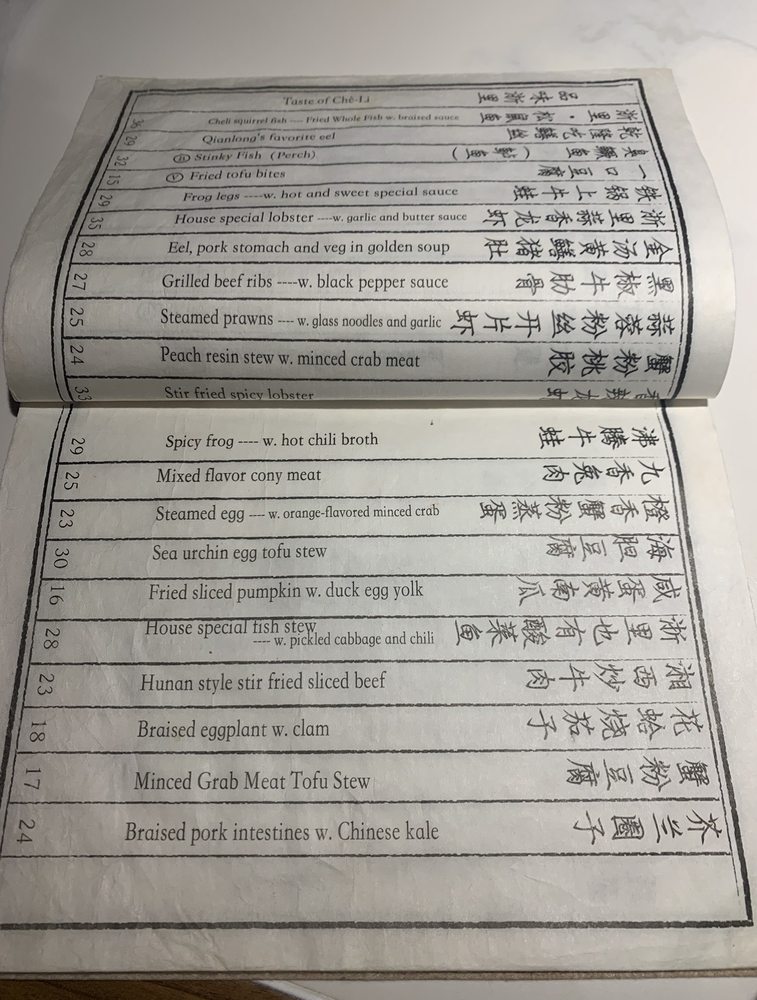 Taste of Chē-Li 品味浙里
36 Cheli squirrel fish ---- Fried Whole Fish w. braised sauce 浙里·松鼠鱼
29 Qianlong's favorite eel 乾隆吃鳝丝
32 Stinky Fish (Perch) 臭鳜鱼（鲈鱼）
15 Fried tofu bites 一口豆腐
29 Frog legs ----w. hot and sweet special sauce 铁锅上牛蛙
35 House special lobster ----w. garlic and butter sauce 浙里蒜香龙虾
28 Eel, pork stomach and veg in golden soup 金汤黄鳝猪肚
27 Grilled beef ribs ----w. black pepper sauce 黑椒牛肋骨
25 Steamed prawns ---- w. glass noodles and garlic 蒜蓉粉丝开片虾
24 Peach resin stew w. minced crab meat 蟹粉桃胶
33 Stir fried spicy lobster 香辣龙虾
29 Spicy frog ---- w. hot chili broth 沸腾牛蛙
25 Mixed flavor cony meat 九香兔肉
23 Steamed egg ---- w. orange-flavored minced crab 橙香蟹粉蒸蛋
30 Sea urchin egg tofu stew 海胆豆腐
16 Fried sliced pumpkin w. duck egg yolk 咸蛋黄南瓜
28 House special fish stew 浙里也有酸菜鱼
---- w. pickled cabbage and chili
23 Hunan style stir fried sliced beef 湘西炒牛肉
18 Braised eggplant w. clam 花蛤烧茄子
17 Minced Grab Meat Tofu Stew 蟹粉豆腐
24 Braised pork intestines w. Chinese kale 芥兰圈子